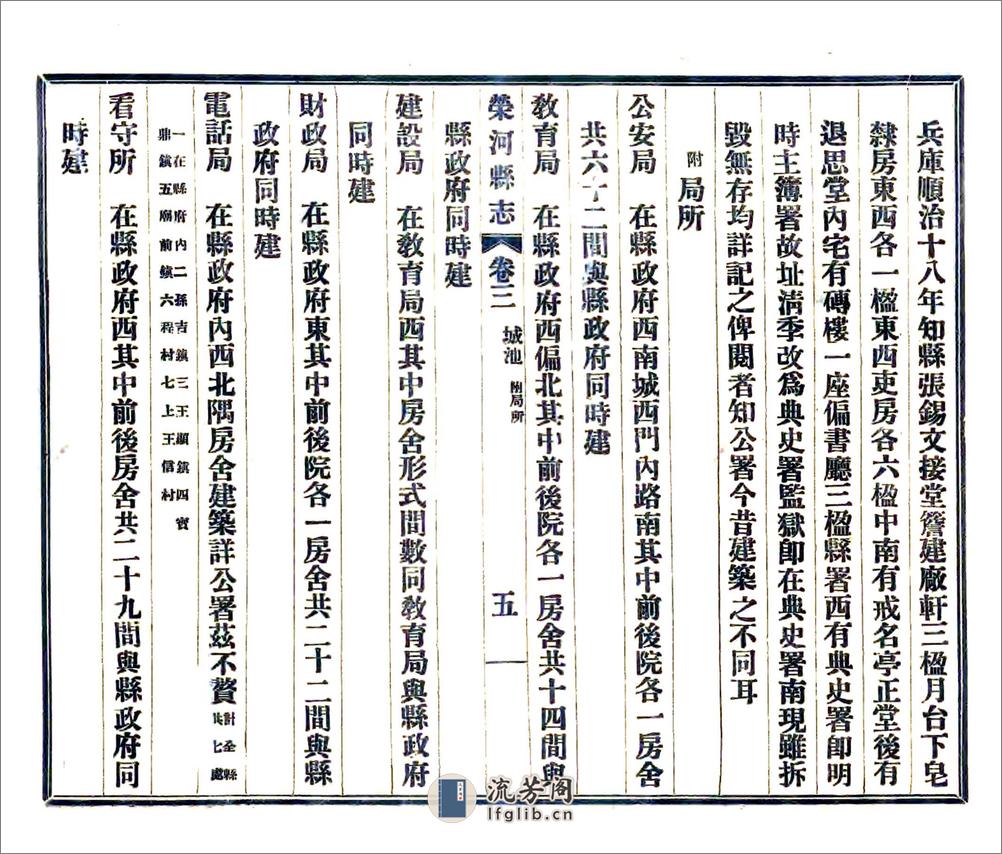 兵庫順治十八年知縣張錫文接堂簷建廠軒三楹月台下皂
隸房東西各一楹東西吏房各六楹中南有戒名亭正堂後有
退思堂內宅有磚樓一座偏書廳三楹縣署西有典史署卽明
時主簿署故址淸季改爲典史署監獄卽在典史署南現雖拆
毀無存均詳記之俾閱者知公署今昔建築之不同耳
附局所
公安局 在縣政府西南城西門內路南其中前後院各一房舍
共六十二間與縣政府同時建
敎育局 在縣政府西偏北其中前後院各一房舍共十四間與
榮河縣志 卷三 城池 附局所 五
縣政府同時建
建設局 在敎育局西其中房舍形式間數同敎育局與縣政府
同時建
財政局 在縣政府東其中前後院各一房舍共二十二間與縣
政府同時建
電話局 在縣政府內西北隅房舍建築詳公署茲不贅計全縣共七處
一在縣府內二孫吉鎮三王顯鎮四寳
鼎鎮五廟前鎮六程村七上王信村
看守所 在縣政府西其中前後房舍共二十九間與縣政府同
時建
流芳阁
lfglib.cn